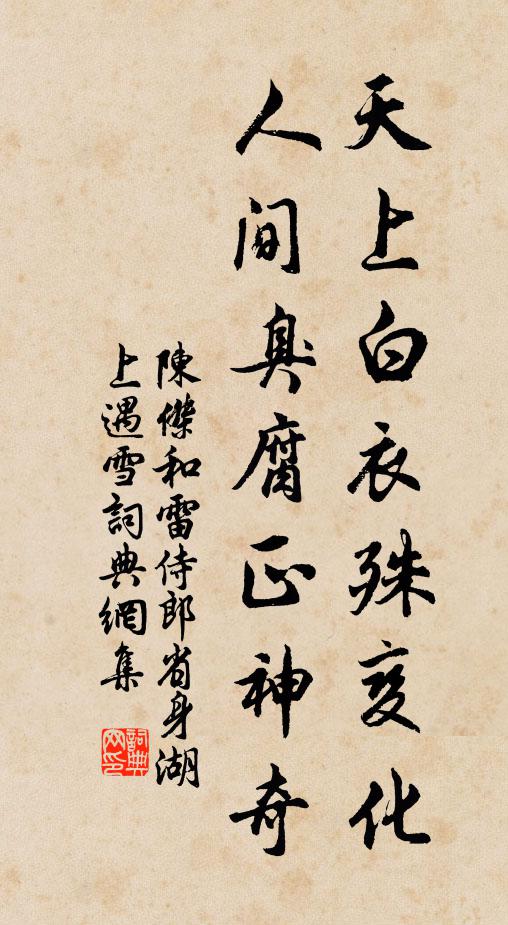 天上白衣殊变化
人间臭腐正神奇
陳傑和雷侍郎省身湖
上遇雪詞典網集
詞典
网印